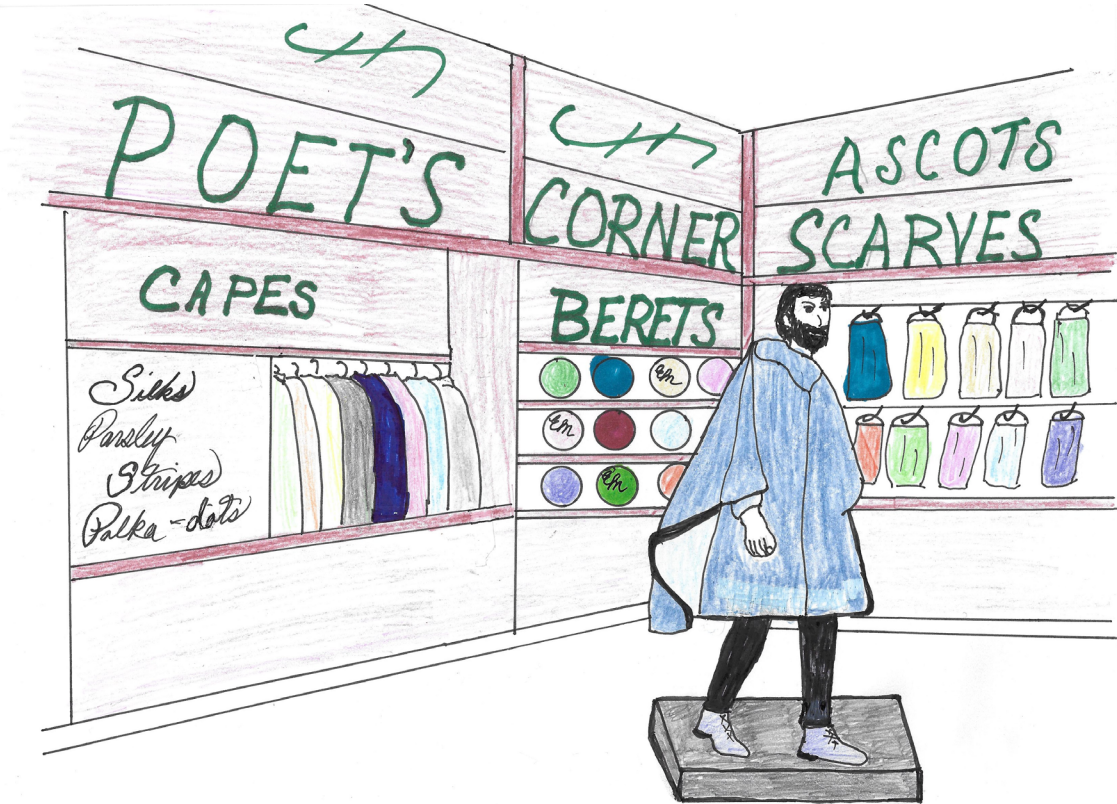 POET'S
CORNER
ASCOTS
SCARVES
CAPES
Silks
Parsley
Stripes
Polka-dots
BERETS
EM
EM
EM